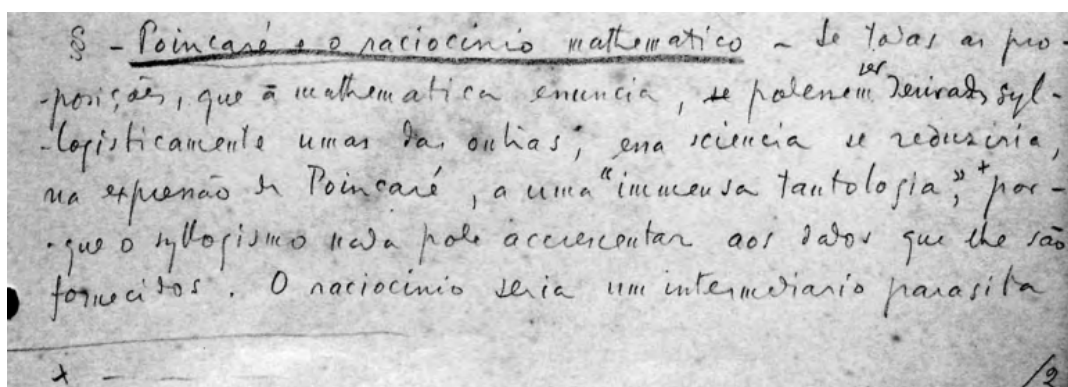 § - Poincaré e o raciocinio mathematico - Se todas as pro-
-posições, que a mathematica enuncia, se podessem ser derivadas syl-
-logisticamente umas das outras, essa sciencia se reduziria,
na expressão de Poincaré, a uma "immensa tautologia",+ por-
-que o syllogismo nada pode accrescentar aos dados que lhe são
fornecidos. O raciocinio seria um intermediario parasita
+ - — — /2